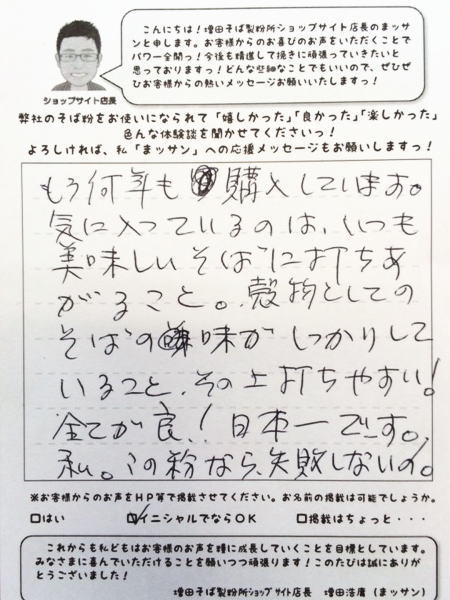 こんにちは！増田そば製粉所ショップサイト店長のまッサ
ンと申します。お客様からのお喜びのお声をいただくことで
パワー全開っ！今後も精進して挽きに頑張っていきたいと
思っております！どんな些細なことでもいいので、ぜひぜ
ひお客様からの熱いメッセージお願いいたしますっ！
ショップサイト店長
弊社のそば粉をお使いになられて「嬉しかった」「良かった」「楽しかった」
色んな体験談を聞かせてくださいっ！
よろしければ、私「まッサン」への応援メッセージもお願いしますっ！
もう何年も購入しています。
気に入っているのは、いつも
美味しいそばに打ちあ
がること。穀物としての
そばの味がしっかりして
いること、その上打ちやすい！
全てが良！日本一です。
私。この粉なら、失敗しないの。
※お客様からのお声をHP等で掲載させてください。お名前の掲載は可能でしょうか。
□はい ☑イニシャルでならOK □掲載はちょっと・・・
これからも私どもはお客様のお声を糧に成長していくことを目標としています。
みなさまに喜んでいただけることを願いつつ頑張ります！このたびは誠にありが
とうございました！
増田そば製粉所ショップサイト店長 増田浩庸（まッサン）